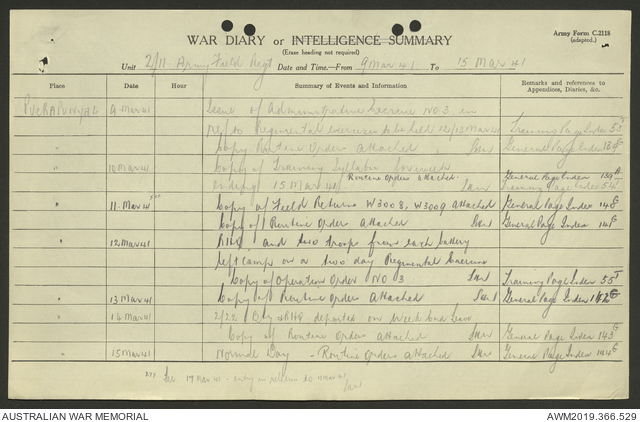 Army Form C.2118
(adapted.)
WAR DIARY or INTELLIGENCE SUMMARY
(Erase heading not required)
Unit 2/11 Army Field Regt Date and Time.—From 9 Mar 41 To 15 Mar 41
Place Date Hour Summary of Events and Information Remarks and references to Appendices, Diaries, &c.
PUCKAPUNYAL 9 Mar 41 Issue of Administrative Exercise No 3 in
ref to Regimental exercises to be held 12/13 Mar 41 Training Page Index
Copy Routine Orders attached General Page Index
" 10 Mar 41 Copy of Training Syllabus for week
ending 15 Mar 41 Routine Orders attached. General Page Index 139
Training Page Index 54
" 11 Mar 41 Copy of Field Returns W3008, W3009 attached General Page Index
Copy of Routine Orders attached General Page Index 141
" 12 Mar 41 RHQ and two troops from each battery
left camp on a two day Regimental Exercise
Copy of Operation Order No 3 Training Page Index 55
" 13 Mar 41 Copy of Routine Orders attached General Page Index 142
" 14 Mar 41 2/22 Bty & RHQ departed on Week End leave
Copy of Routine Orders attached General Page Index 143
" 15 Mar 41 Normal Day - Routine Orders attached General Page Index 144
See 17 Mar 41 - entry as return to 11 Mar 41
AUSTRALIAN WAR MEMORIAL AWM2019.366.529